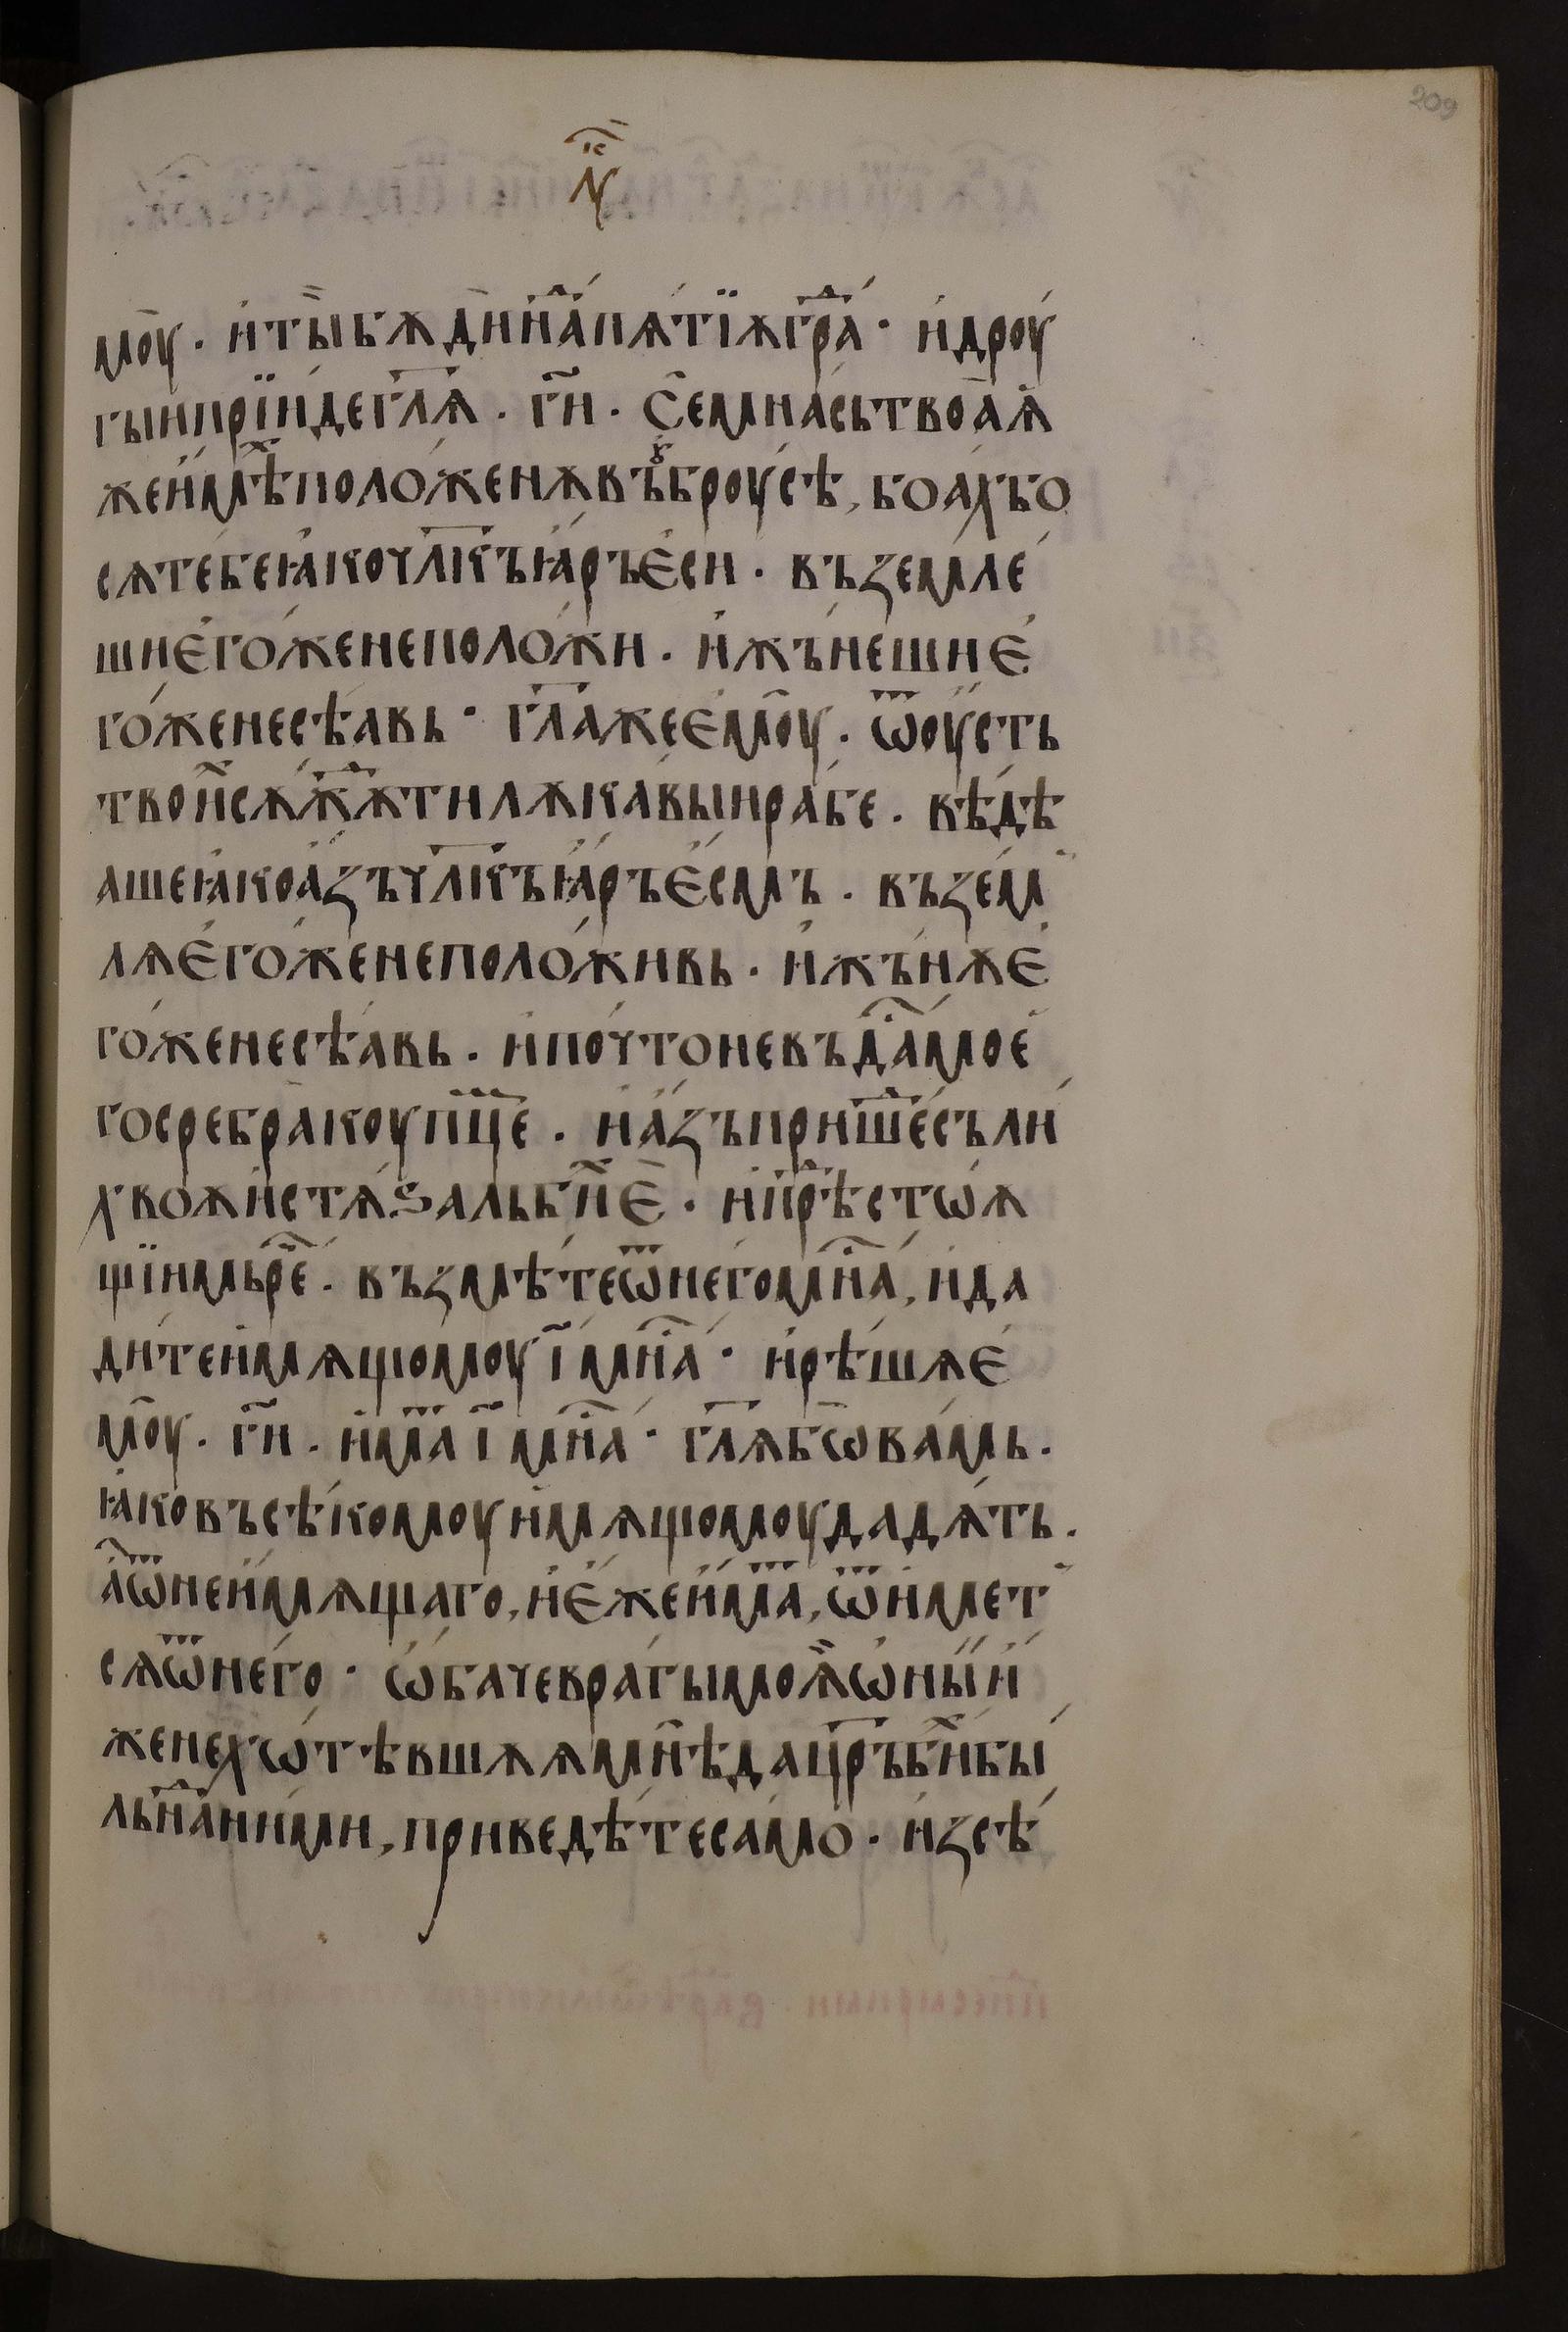 209
моу҄. и҆ ты̏ бѫди на̑ пѧ́тїѫ гра̑. и҆ дроу
гыи прїи́де гл҃ѧ. г҃и. се̑ мнась твоа̀ ѧ҆
же и҆мѣ̑хъ положенѫ въ оу҆броусѣ, боа́хъ бо
сѧ тебе ꙗ҆ко чл҃къ ꙗ҆ръ є҆си. въземле
ши є҆го́же не поло́жи. и҆ жънеши є҆
го́же не сѣ́авь. гл҃а же є҆моу̑. ѿ оу҆сть
твои̑ сѫжѫ̑ ти лѫка́выи ра́бе. вѣ́дѣ
аше ꙗ҆ко а҆зъ чл҃къ ꙗ҆ръ є҆смъ. възем
лѧ є҆го́же не поло́живь. и҆ жънѧ є҆
го́же не сѣ́авь. и҆ по́что не въда̑ мое
го сребра̀ коупцеⷨ. и҆ а҆зъ прише̑ съ ли
хвоѫ и҆стѧѕаль би̑ є҆. и҆ прѣ̑стоѫ
щїимь ре̑. възмѣ́те ѿ него мна̑, и҆ да
ди́те и҆мѫщомоу і҃ мна̑. и҆ рѣ́шѫ є҆
моу̑. г҃и. и҆ма̑ і҃ мна̑. гл҃ѧ бѡ ва́мь.
ꙗ҆ко въсѣ́комоу и҆мѫщомоу дадѧ́ть.
а҆ ѿ неи҆мѫщаго, и҆ є҆же и҆ма̑, ѿимет
сѧ ѿ него̀. ѡ҆баче врагы моѧ̑ ѡ҆ны̏ и҆
же не хѡтѣвшѫѧ мнѣ̑ да цр҃ъ би̑ бы
ль на̑ ними, приведѣ́те само. и҆зсѣ́